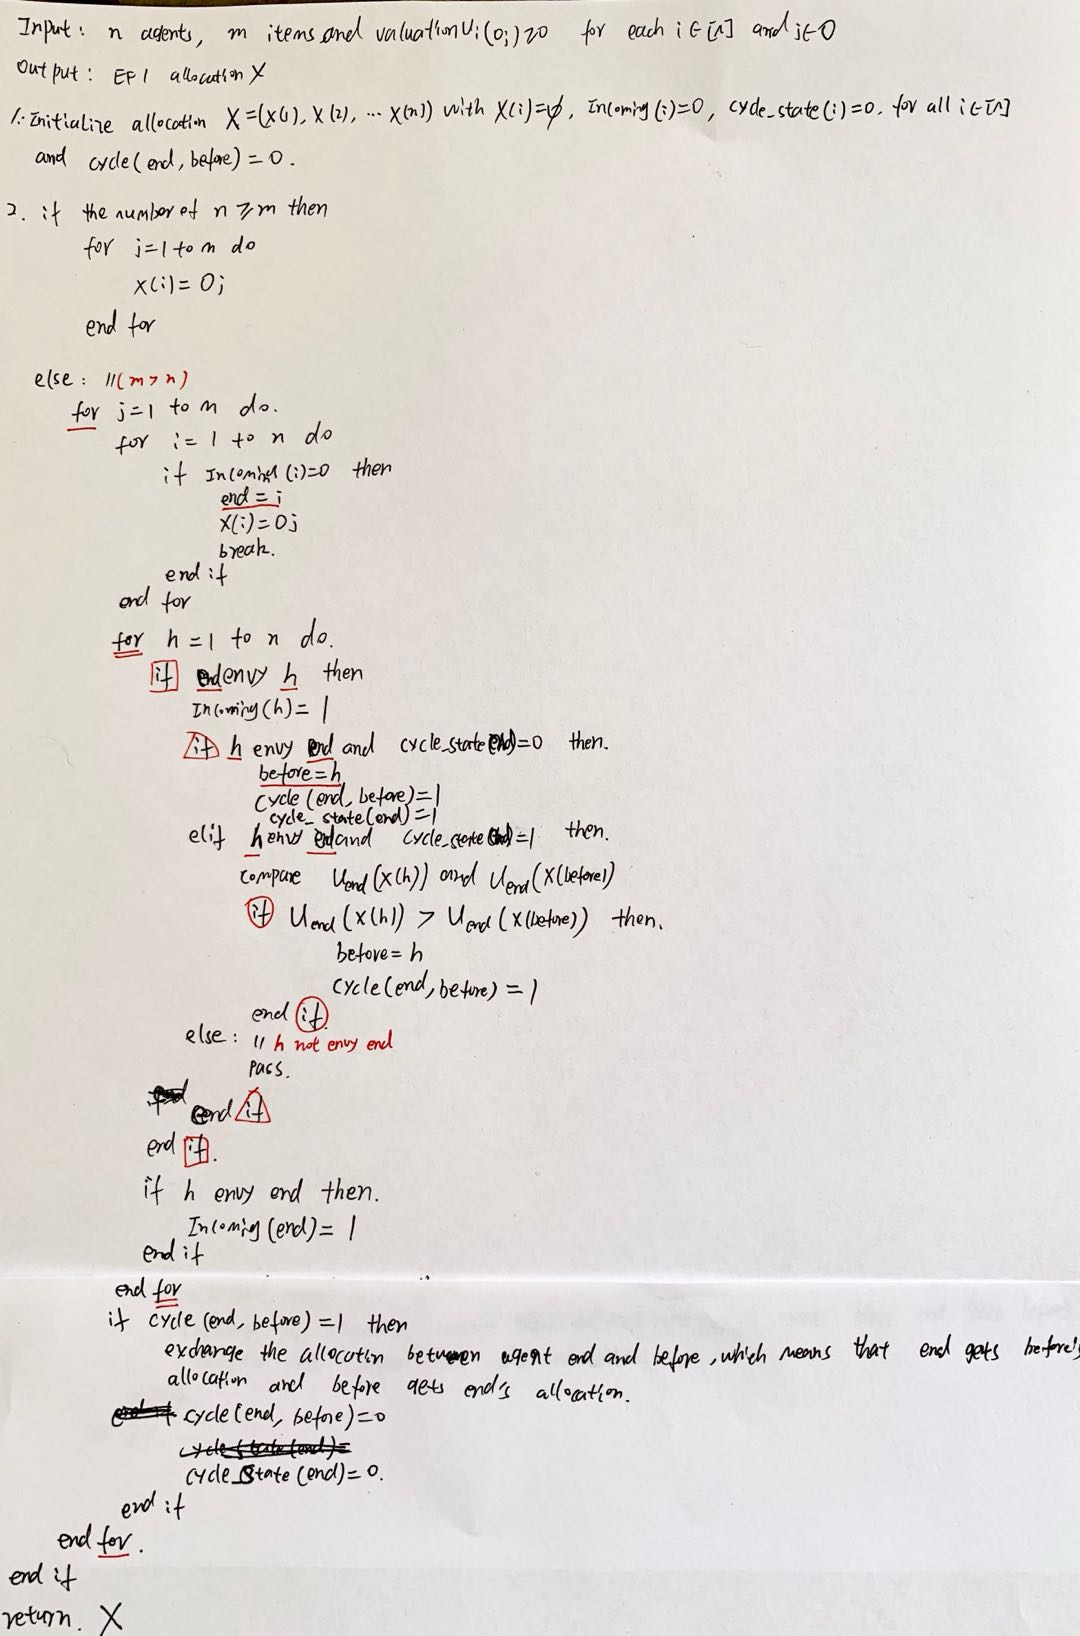 Input: n agents, m items and valuation Ui(Oj)≥0 for each i∈[n] and j∈O
Output: EF1 allocation X
1. Initialize allocation X=(X(1), X(2), ... X(n)) with X(i)=∅, Incoming(i)=0, cycle_state(i)=0. for all i∈[n]
and cycle(end, before) = 0.
2. if the number of n ≥ m then
for j=1 to m do
X(i)= Oj
end for
else: //(m>n)
for j=1 to m do.
for i=1 to n do
if Incoming(i)=0 then
end = i
X(i)=Oj
break.
end if
end for
for h=1 to n do.
if end envy h then
Incoming(h)= 1
if h envy end and cycle_state(end)=0 then.
before=h
cycle(end, before)=1
cycle_state(end)=1
elif h envy end and cycle_state(end)=1 then.
compare Uend(X(h)) and Uend(X(before))
if Uend(X(h)) > Uend(X(before)) then.
before=h
cycle(end, before) = 1
end if.
else: // h not envy end
pass.
end if
end if.
if h envy end then.
Incoming(end)= 1
end if
end for
if cycle(end, before)=1 then
exchange the allocation between agent end and before, which means that end gets before's
allocation and before gets end's allocation.
cycle(end, before)=0
cycle_state(end)=0.
end if
end for.
end if
return. X